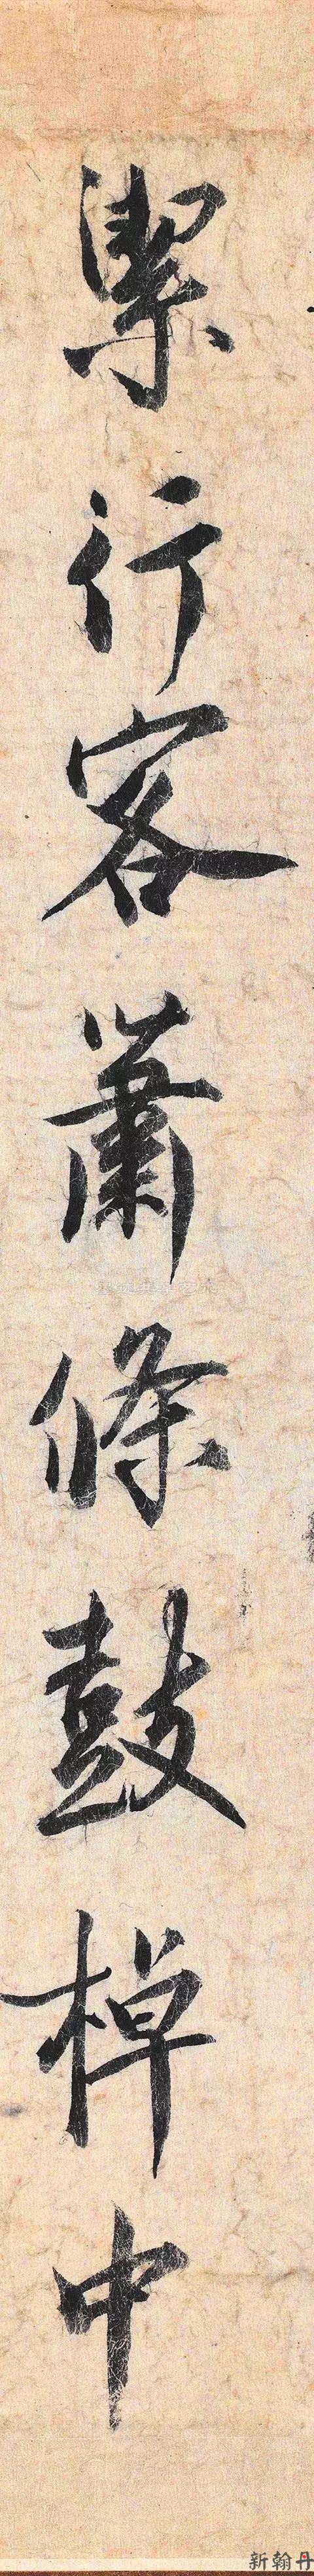 潔行客蕭條鼓棹中
新翰丹